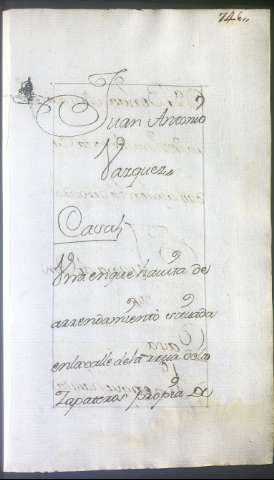 746,,
Juan Antonio
Vazquez,,
Casas
Una en que havita de
arrendamiento situada
en la calle de la rua de los
Zapateros propia De